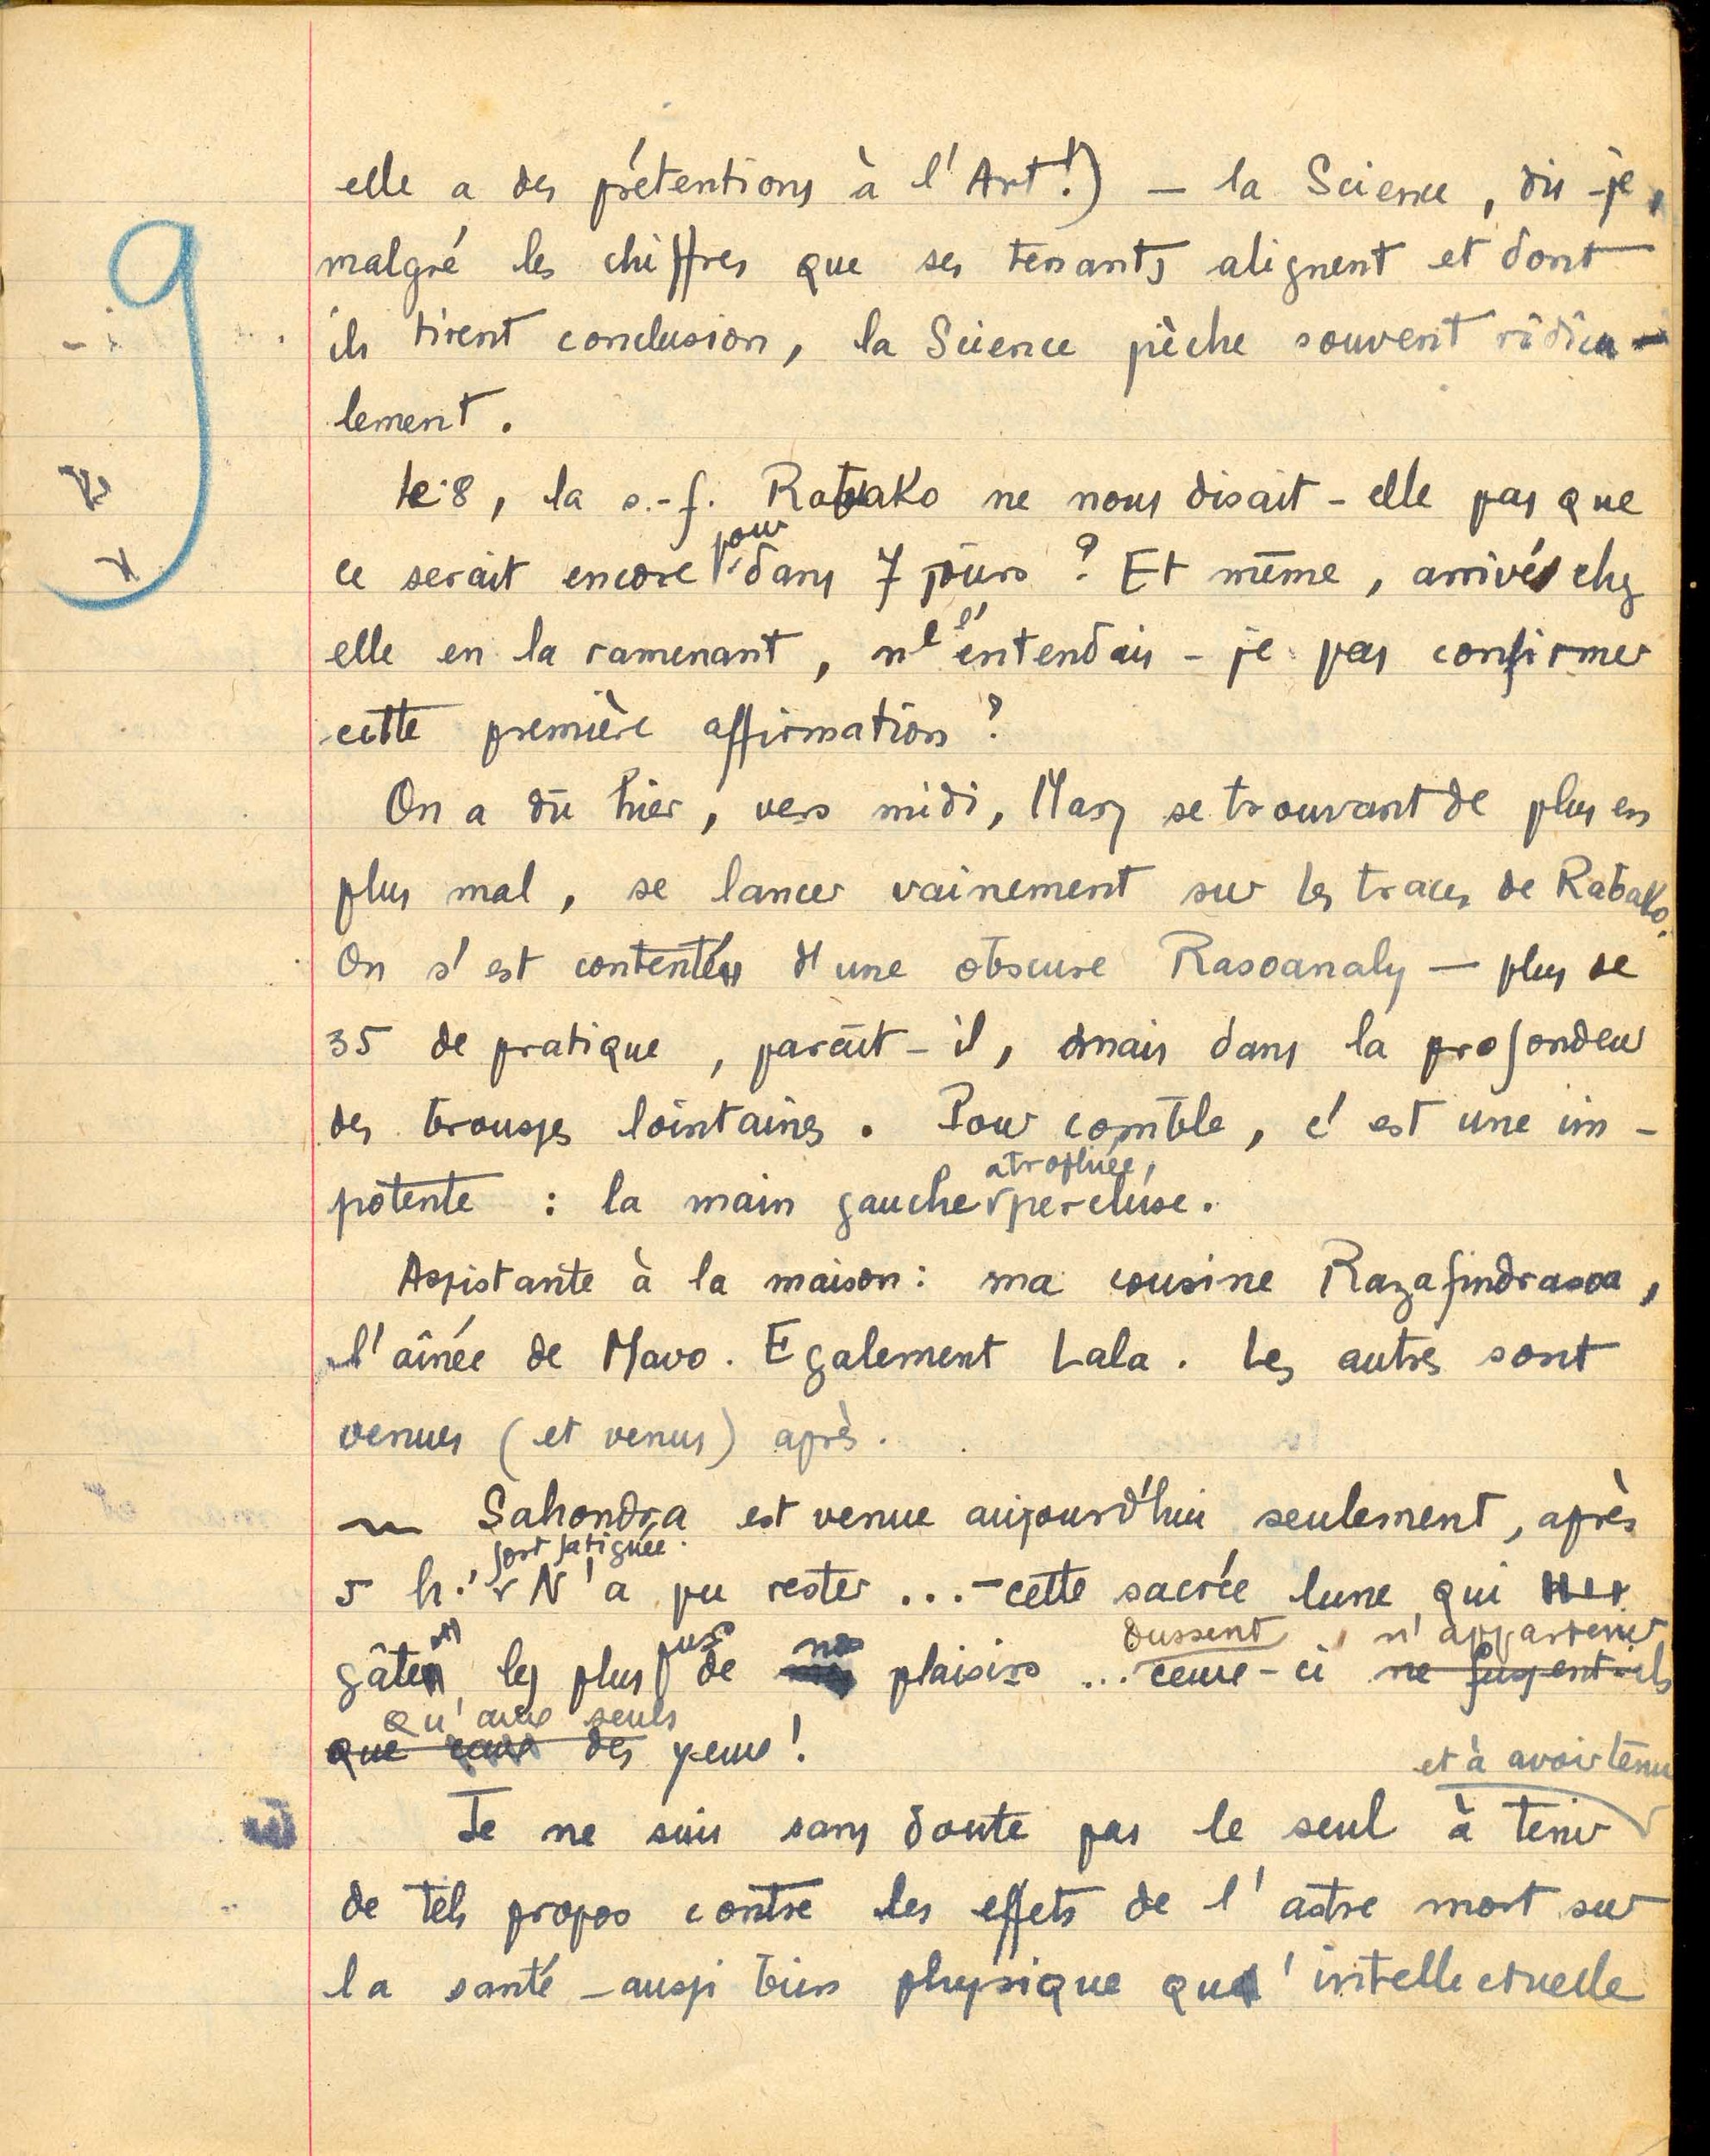 9
elle a des prétentions à l'Art!) — la Science, dis-je,
malgré les chiffres que ses tenants alignent et dont
ils tirent conclusion, la Science pèche souvent ridicu-
lement.
Le 8, la s.-f. Rabako ne nous disait-elle pas que
pour
ce serait encore dans 7 jours ? Et même, arrivés chez
elle en la ramenant, ne l'entendais-je pas confirmer
cette première affirmation ?
On a dû hier, vers midi, Mary se trouvant de plus en
plus mal, se lancer vainement sur les traces de Rabako.
On s'est contenté d'une obscure Rasoanaly — plus de
35 de pratique, paraît-il, mais dans la profondeur
des brousses lointaines. Pour comble, c'est une im-
atrophiée,
potente : la main gauche percluse.
Assistante à la maison : ma cousine Razafindrasoa,
l'aînée de Mavo. Egalement Lala. Les autres sont
venues (et venus) après.
— Sahondra est venue aujourd'hui seulement, après
fort fatiguée.
5 h. N'a pu rester ... — cette sacrée lune qui
purs nos dussent n'appartenir
gâte les plus de plaisirs ... ceux-ci ne fussent-ils
qu'aux seuls
que ceux des yeux !
et à avoir tenu
Je ne suis sans doute pas le seul à tenir
de tels propos contre les effets de l'astre mort sur
la santé — aussi bien physique qu'intellectuelle